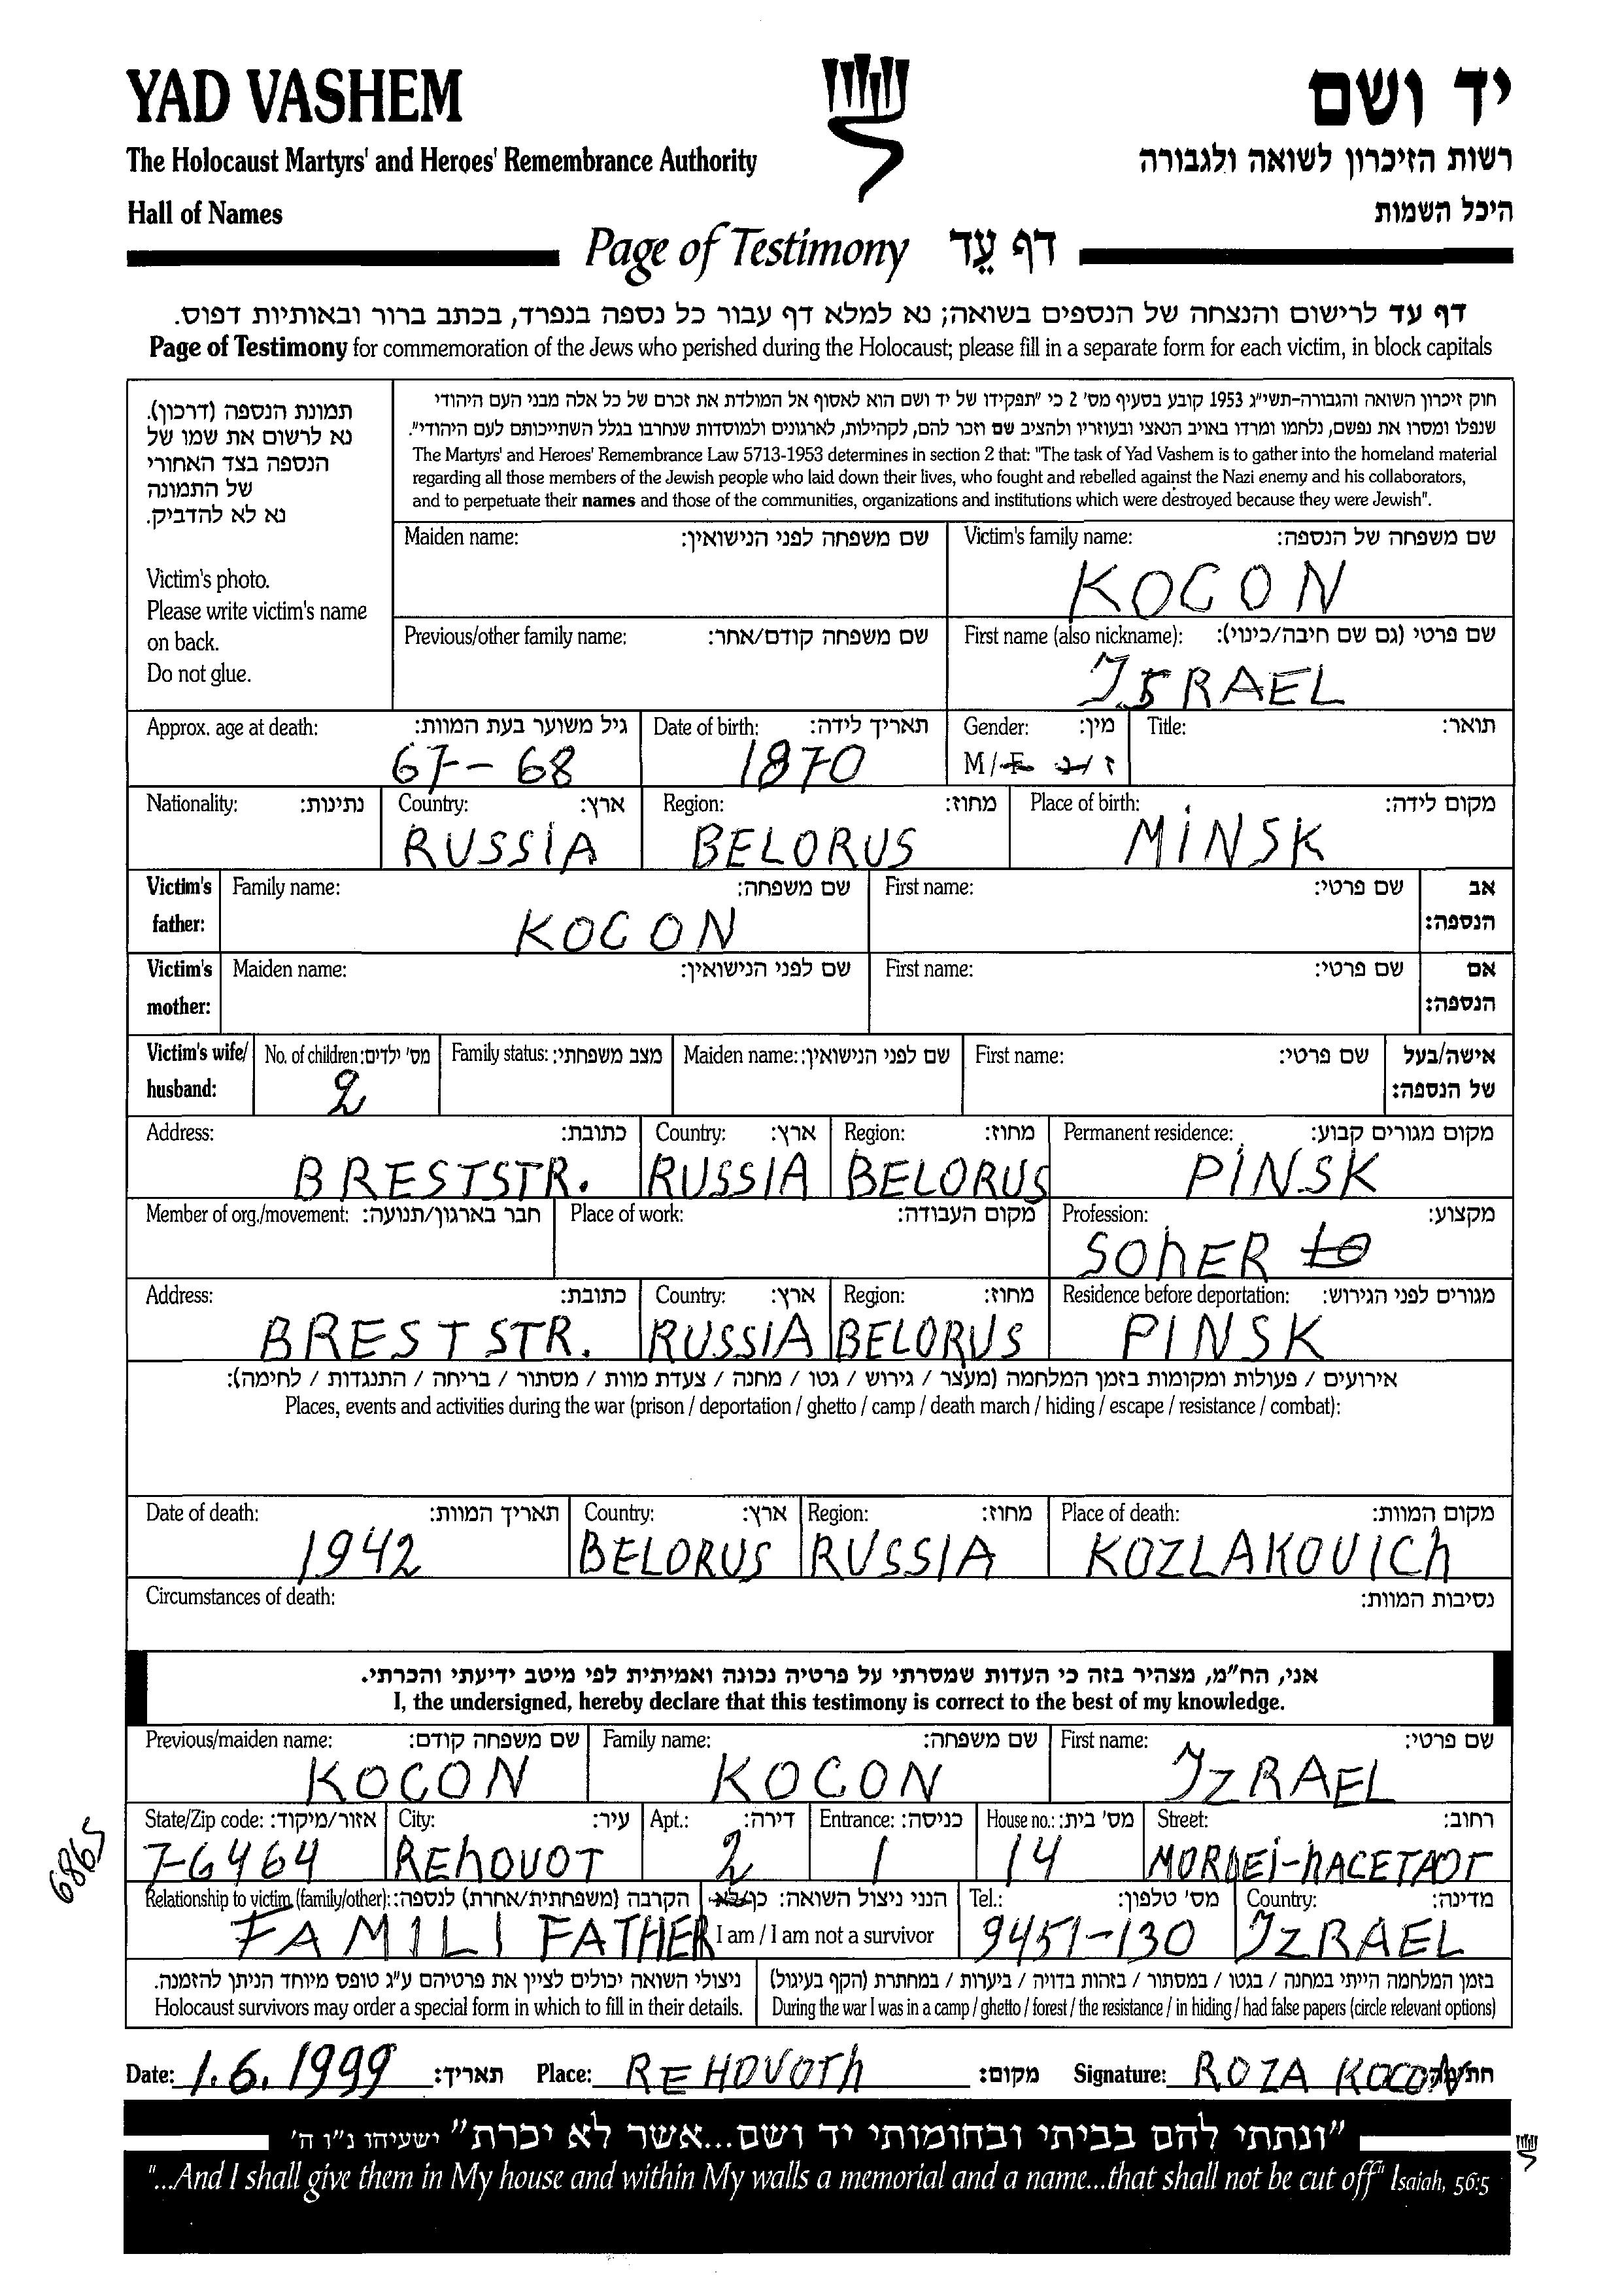 YAD VASHEM
יד ושם
The Holocaust Martyrs' and Heroes' Remembrance Authority
רשות הזיכרון לשואה ולגבורה
Hall of Names
היכל השמות
Page of Testimony דף עֵד
דף עד לרישום והנצחה של הנספים בשואה; נא למלא דף עבור כל נספה בנפרד, בכתב ברור ובאותיות דפוס.
Page of Testimony for commemoration of the Jews who perished during the Holocaust; please fill in a separate form for each victim, in block capitals
תמונת הנספה (דרכון).
נא לרשום את שמו של
הנספה בצד האחורי
של התמונה
נא לא להדביק.
Victim's photo.
Please write victim's name
on back.
Do not glue.
חוק זיכרון השואה והגבורה-תשי"ג 1953 קובע בסעיף מס' 2 כי "תפקידו של יד ושם הוא לאסוף אל המולדת את זכרם של כל אלה מבני העם היהודי
שנפלו ומסרו את נפשם, נלחמו ומרדו באויב הנאצי ובעוזריו ולהציב שם וזכר להם, לקהילות, לארגונים ולמוסדות שנחרבו בגלל השתייכותם לעם היהודי".
The Martyrs' and Heroes' Remembrance Law 5713-1953 determines in section 2 that: "The task of Yad Vashem is to gather into the homeland material
regarding all those members of the Jewish people who laid down their lives, who fought and rebelled against the Nazi enemy and his collaborators,
and to perpetuate their names and those of the communities, organizations and institutions which were destroyed because they were Jewish".
Maiden name: שם משפחה לפני הנישואין: Victim's family name: שם משפחה של הנספה:
KOGON
Previous/other family name: שם משפחה קודם/אחר: First name (also nickname): שם פרטי (גם שם חיבה/כינוי):
ISRAEL
Approx. age at death: גיל משוער בעת המוות: Date of birth: תאריך לידה: Gender: מין: Title: תואר:
67-68 1870 M/F ז/נ
Nationality: נתינות: Country: ארץ: Region: מחוז: Place of birth: מקום לידה:
RUSSIA BELORUS MINSK
Victim's father: Family name: שם משפחה: First name: שם פרטי: אב הנספה:
KOGON
Victim's mother: Maiden name: שם לפני הנישואין: First name: שם פרטי: אם הנספה:
Victim's wife/husband: No. of children: מס' ילדים: Family status: מצב משפחתי: Maiden name: שם לפני הנישואין: First name: שם פרטי: אישה/בעל של הנספה:
2
Address: כתובת: Country: ארץ: Region: מחוז: Permanent residence: מקום מגורים קבוע:
BRESTSTR. RUSSIA BELORUS PINSK
Member of org./movement: חבר בארגון/תנועה: Place of work: מקום העבודה: Profession: מקצוע:
SOhER
Address: כתובת: Country: ארץ: Region: מחוז: Residence before deportation: מגורים לפני הגירוש:
BRESTSTR. RUSSIA BELORUS PINSK
אירועים / פעולות ומקומות בזמן המלחמה (מעצר / גירוש / גטו / מחנה / צעדת מוות / מסתור / בריחה / התנגדות / לחימה):
Places, events and activities during the war (prison / deportation / ghetto / camp / death march / hiding / escape / resistance / combat):
Date of death: תאריך המוות: Country: ארץ: Region: מחוז: Place of death: מקום המוות:
1942 BELORUS RUSSIA KOZLAKOVICh
Circumstances of death: נסיבות המוות:
אני, הח"מ, מצהיר בזה כי העדות שמסרתי על פרטיה נכונה ואמיתית לפי מיטב ידיעתי והכרתי.
I, the undersigned, hereby declare that this testimony is correct to the best of my knowledge.
Previous/maiden name: שם משפחה קודם: Family name: שם משפחה: First name: שם פרטי:
KOGON KOGON IZRAEL
State/Zip code: אזור/מיקוד: City: עיר: Apt.: דירה: Entrance: כניסה: House no.: מס' בית: Street: רחוב:
7-6464 REhOVOT 2 1 14 MORDEI-hAGETAOT
6865
Relationship to victim (family/other): הקרבה (משפחתית/אחרת) לנספה: הנני ניצול השואה: כן/לא Tel.: מס' טלפון: Country: מדינה:
FAMILI FATHER I am / I am not a survivor 9451-130 IZRAEL
ניצולי השואה יכולים לציין את פרטיהם ע"ג טופס מיוחד הניתן להזמנה.
Holocaust survivors may order a special form in which to fill in their details.
בזמן המלחמה הייתי במחנה / בגטו / במסתור / בזהות בדויה / ביערות / במחתרת (הקף בעיגול)
During the war I was in a camp / ghetto / forest / the resistance / in hiding / had false papers (circle relevant options)
Date: 1.6.1999 תאריך: Place: REHOVOTh מקום: Signature: ROZA KOGON חתימה:
"ונתתי להם בביתי ובחומותי יד ושם...אשר לא יכרת" ישעיהו נ"ו ה'
"...And I shall give them in My house and within My walls a memorial and a name...that shall not be cut off" Isaiah, 56:5